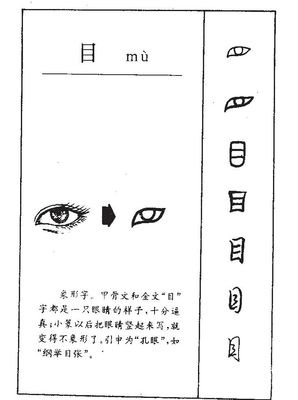 目 mù
象形字。甲骨文和金文“目”
字都是一只眼睛的样子,十分逼
真;小篆以后把眼睛竖起来写,就
变得不象形了。引申为“孔眼”,如
“纲举目张”。